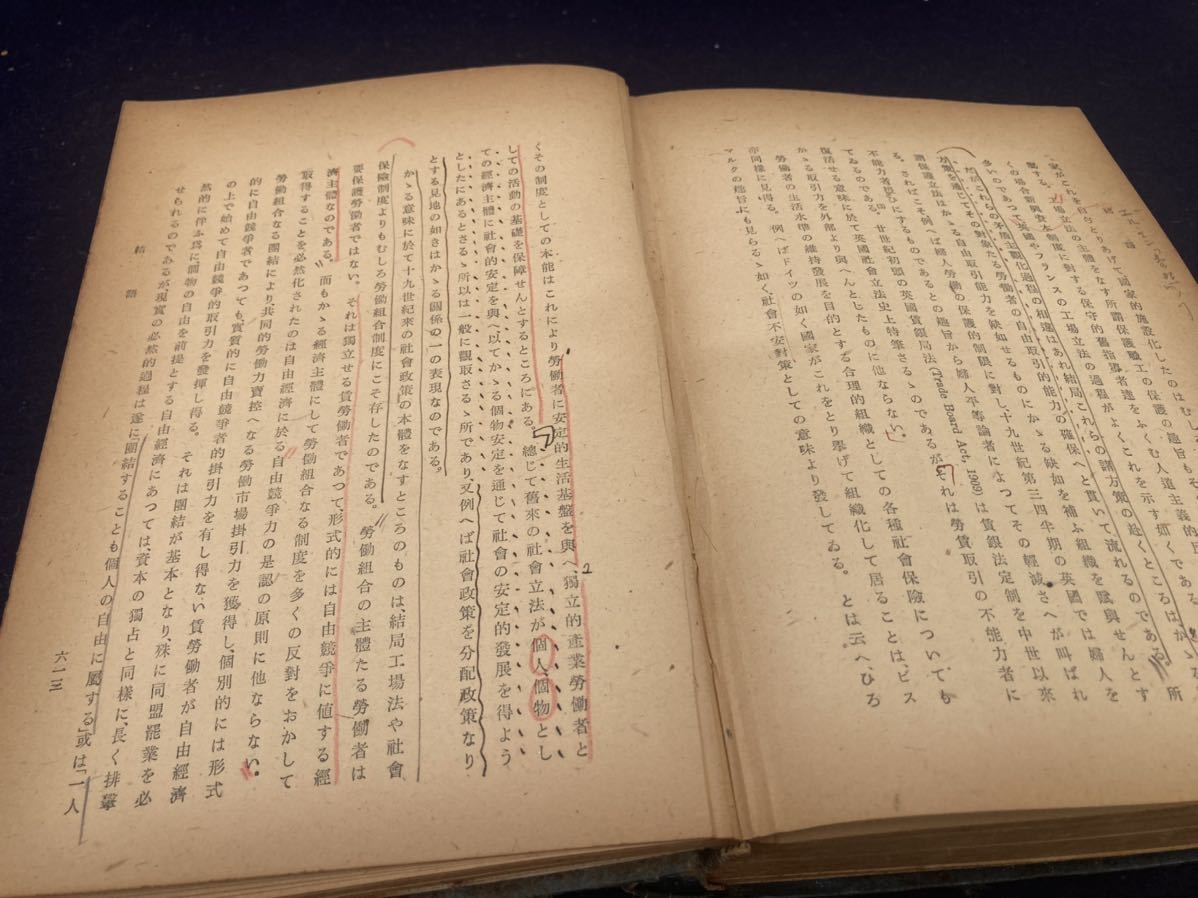 家がこれを自らとりあげて國家的施設化したのは
工場立法の主體をなす所謂保護職工の保護の趣旨もそ
工場立法に對する保守的舊指導者達をふくむ人道主義的
の場合新興資本制度
くの場合新興資本制度の過程がよくこれを示す如くである
多いのであつて英國やフランスの工場立法の
たゞこれらの矛盾主觀化過程の相違はあれ、結局これらの諸方策の趣くところはかゝる所
が策を通じてその對象たる勞働者の自由取引的能力の確保へと貫いて流れるのである。
護保護立法はかゝる自由取引能力を缺如せるものにかゝる缺如を補ふ組織を賦與せんとす
る。さればこそ例へば婦人勞働の保護的制限に對し十九世紀第三四半期の英國では婦人を
不能力者扱ひにするものであるとの趣旨から婦人平等論者によつてその輕減さへが叫ばれ
てゐるのである。廿世紀初頭の英國賃銀局法(Trade Board Act, 1909)は賃銀法定制を中世以來
復活せる意味に於て英國社會立法史上特筆さるゝのであるが、それは勞賃取引の不能力者に
かゝる取引力を外部より與へんとしたものに他ならない。
勞働者の生活水準の維持發展を目的とする合理的組織としての各種社會保險についても
亦同樣に見得る。例へばドイツの如く國家がこれをとり擧げて組織化して居ることは、ビス
マルクの趣旨にも見らるゝ如く、社會不安對策としての意味より發してゐる。とは云へ、ひろ
くその制度としての本能はこれにより勞働者に安定的生活基盤を與へ、獨立的產業勞働者と
しての活動の基礎を保障せんとするところにある。總じて舊來の社會立法が個人、個物とし
ての經濟主體に社會的安定を與へ以てかゝる個物安定を通じて社會の安定的發展を得よう
としたにあるとさるゝ所以は一般に觀取さるゝ所であり、又例へば社會政策を分配政策なり
とする見地の如きはかゝる關係の一の表現なのである。
かゝる意味に於て十九世紀來の社會政策の本體をなすところのものは、結局工場法や社會
保險制度よりもむしろ勞働組合制度にこそ存したのである。勞働組合の主體たる勞働者は
要保護勞働者ではない。それは獨立せる賃勞働者であつて、形式的には自由競爭に値する經
濟主體なのである。而もかゝる經濟主體にして勞働組合なる制度を多くの反對をおかして
取得することを必然化されたのは自由經濟に於る自由競爭力の是認の原則に他ならない。
勞働組合なる團結により、共同的勞働力賣捌へなる勞働市場掛引力を獲得し、個別的には形式
的に自由競爭者であつても、實質的に自由競爭者的掛引力を有し得ない賃勞働者が自由經濟
の上で始めて自由競爭的取引力を發揮し得る。それは團結が基本となり、殊に同盟罷業を必
然的に伴ふ爲に、個物の自由を前提とする自由經濟にあつては、資本の獨占と同樣に、長く排擊
せられるのであるが現實の必然的過程は遂に「團結することも個人の自由に屬する」或は「一人
結語
六一三